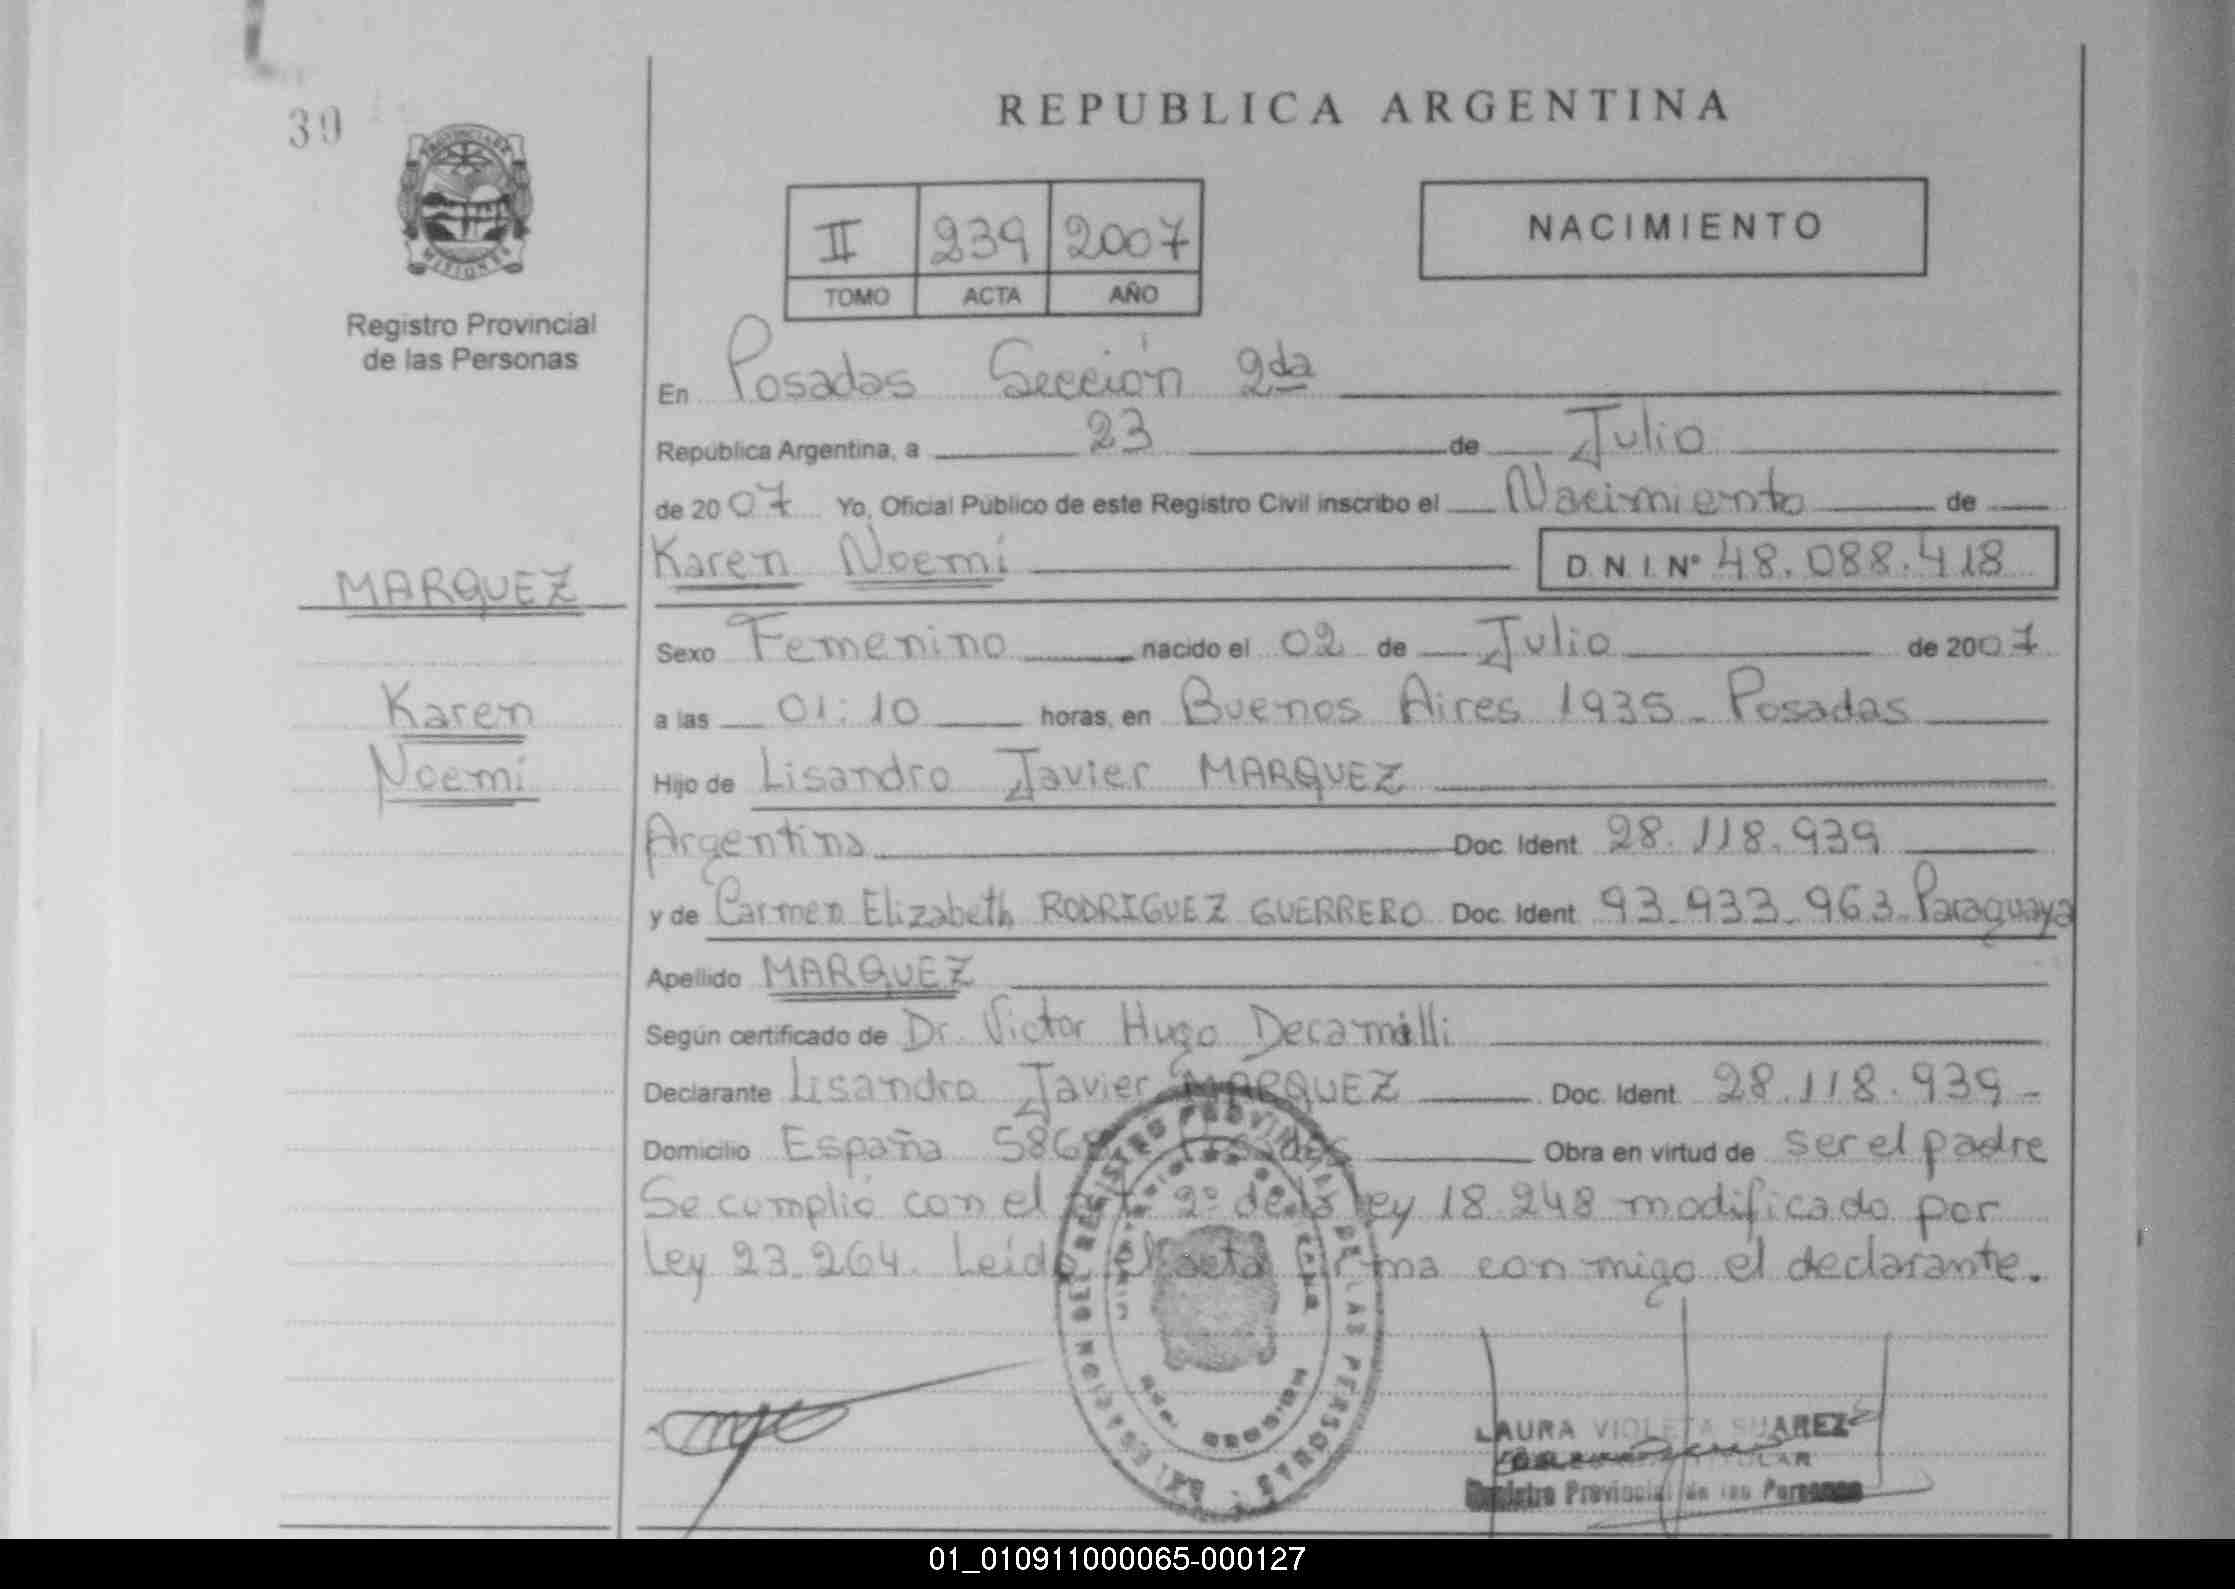 39
REPUBLICA ARGENTINA
PROVINCIA DE
MISIONES
Registro Provincial
de las Personas
II 239 2007
TOMO ACTA AÑO
NACIMIENTO
En Posadas Sección 2da
República Argentina, a 23 de Julio
de 2007 Yo, Oficial Público de este Registro Civil inscribo el Nacimiento de
Karen Noemi D.N.I. Nº 48.088.418
MARQUEZ
Sexo Femenino nacido el 02 de Julio de 2007
Karen
a las 01:10 horas, en Buenos Aires 1935 - Posadas
Noemi
Hijo de Lisandro Javier MARQUEZ
Argentina Doc. Ident. 28.118.939
y de Carmen Elizabeth RODRIGUEZ GUERRERO Doc. Ident. 93.933.963 - Paraguaya
Apellido MARQUEZ
Según certificado de Dr. Victor Hugo Decamilli
Declarante Lisandro Javier MARQUEZ Doc. Ident. 28.118.939 -
Domicilio España Obra en virtud de ser el padre
Se cumplió con el 2º de la ley 18.248 modificado por
ley 23.264. Leída el acta firma con migo el declarante.
DELEGACION DEL REGISTRO PROVINCIAL DE LAS PERSONAS
LAURA VIOLETA SUAREZ
TITULAR
Registro Provincial de las Personas
01_010911000065-000127